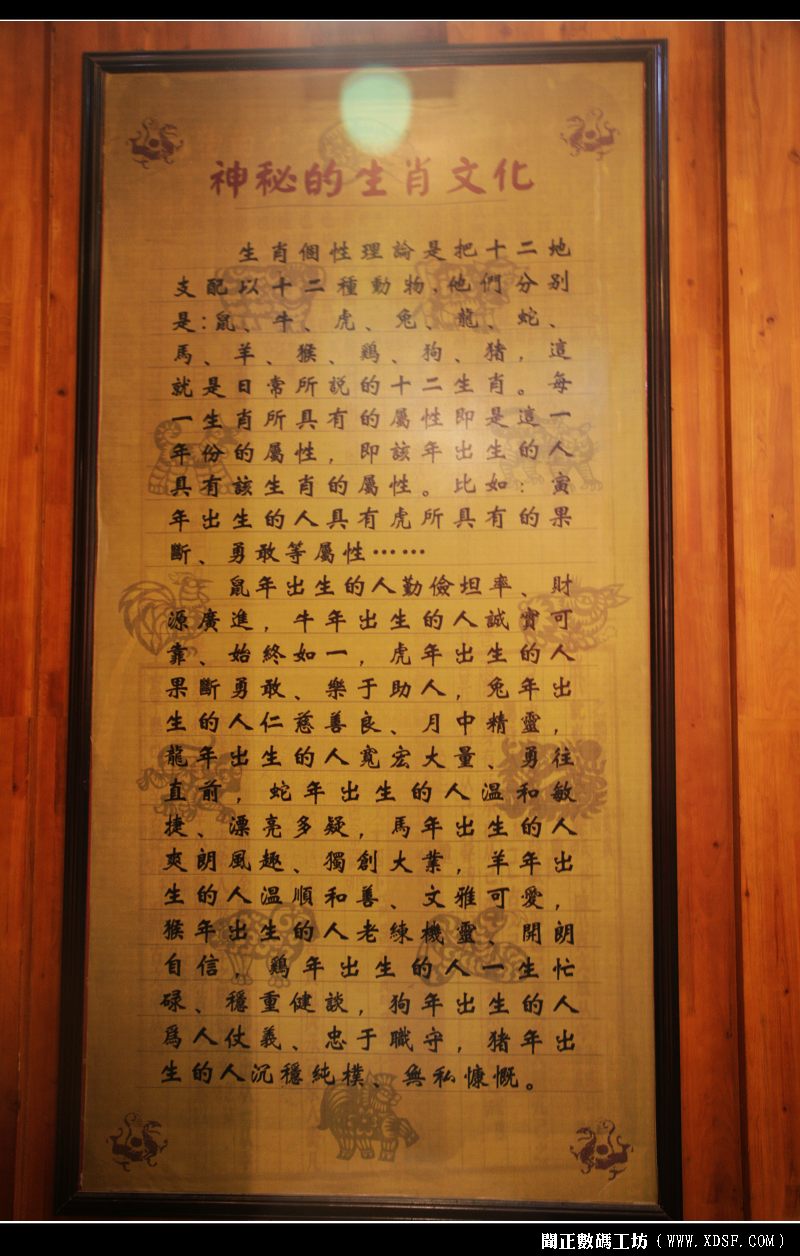 神秘的生肖文化
生肖個性理論是把十二地
支配以十二種動物,他們分别
是:鼠、牛、虎、兔、龍、蛇、
馬、羊、猴、鷄、狗、猪,這
就是日常所説的十二生肖。每
一生肖所具有的屬性即是這一
年份的屬性,即該年出生的人
具有該生肖的屬性。比如:寅
年出生的人具有虎所具有的果
斷、勇敢等屬性……
鼠年出生的人勤儉坦率、財
源廣進,牛年出生的人誠實可
靠、始終如一,虎年出生的人
果斷勇敢、樂于助人,兔年出
生的人仁慈善良、月中精靈,
龍年出生的人寬宏大量、勇往
直前,蛇年出生的人温和敏
捷、漂亮多疑,馬年出生的人
爽朗風趣、獨創大業,羊年出
生的人温順和善、文雅可愛,
猴年出生的人老練機靈、開朗
自信,鷄年出生的人一生忙
碌、穩重健談,狗年出生的人
爲人仗義、忠于職守,猪年出
生的人沉穩純樸、無私慷慨。
聞正數碼工坊(WWW.XDSF.COM)